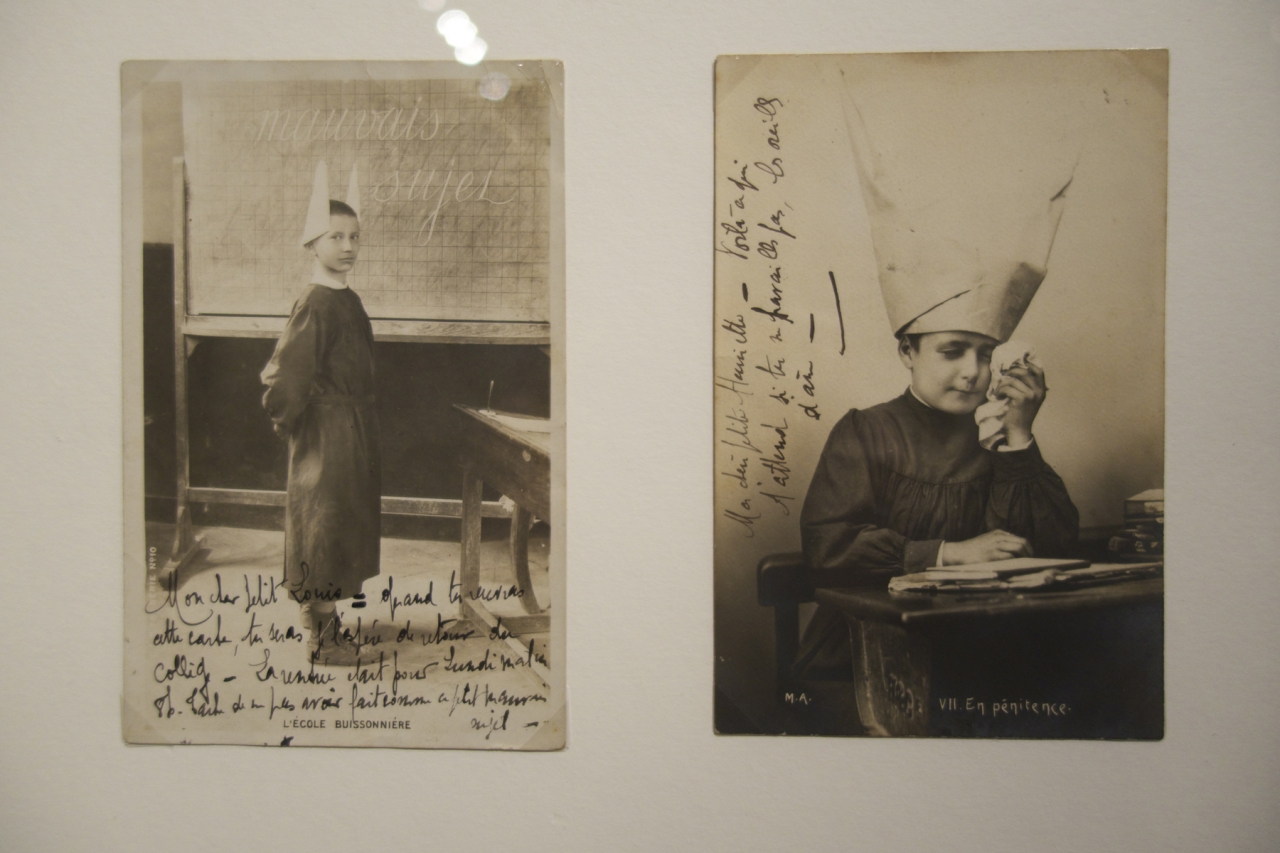 mauvais
sujet
Mon cher petit Louis = quand tu recevras
cette carte, tu seras j'l'espère de retour du
collèg - La rentrée était pour Lundi matin
Tâche de ne pas avoir fait comme ce petit mauvais
sujet -
L'ÉCOLE BUISSONNIÈRE
Nº10
Ma chère petite Henriette - Voilà ce qui
t'attend si tu ne travailles pas, les oreilles
d'âne -
M.A.
VII. En pénitence.